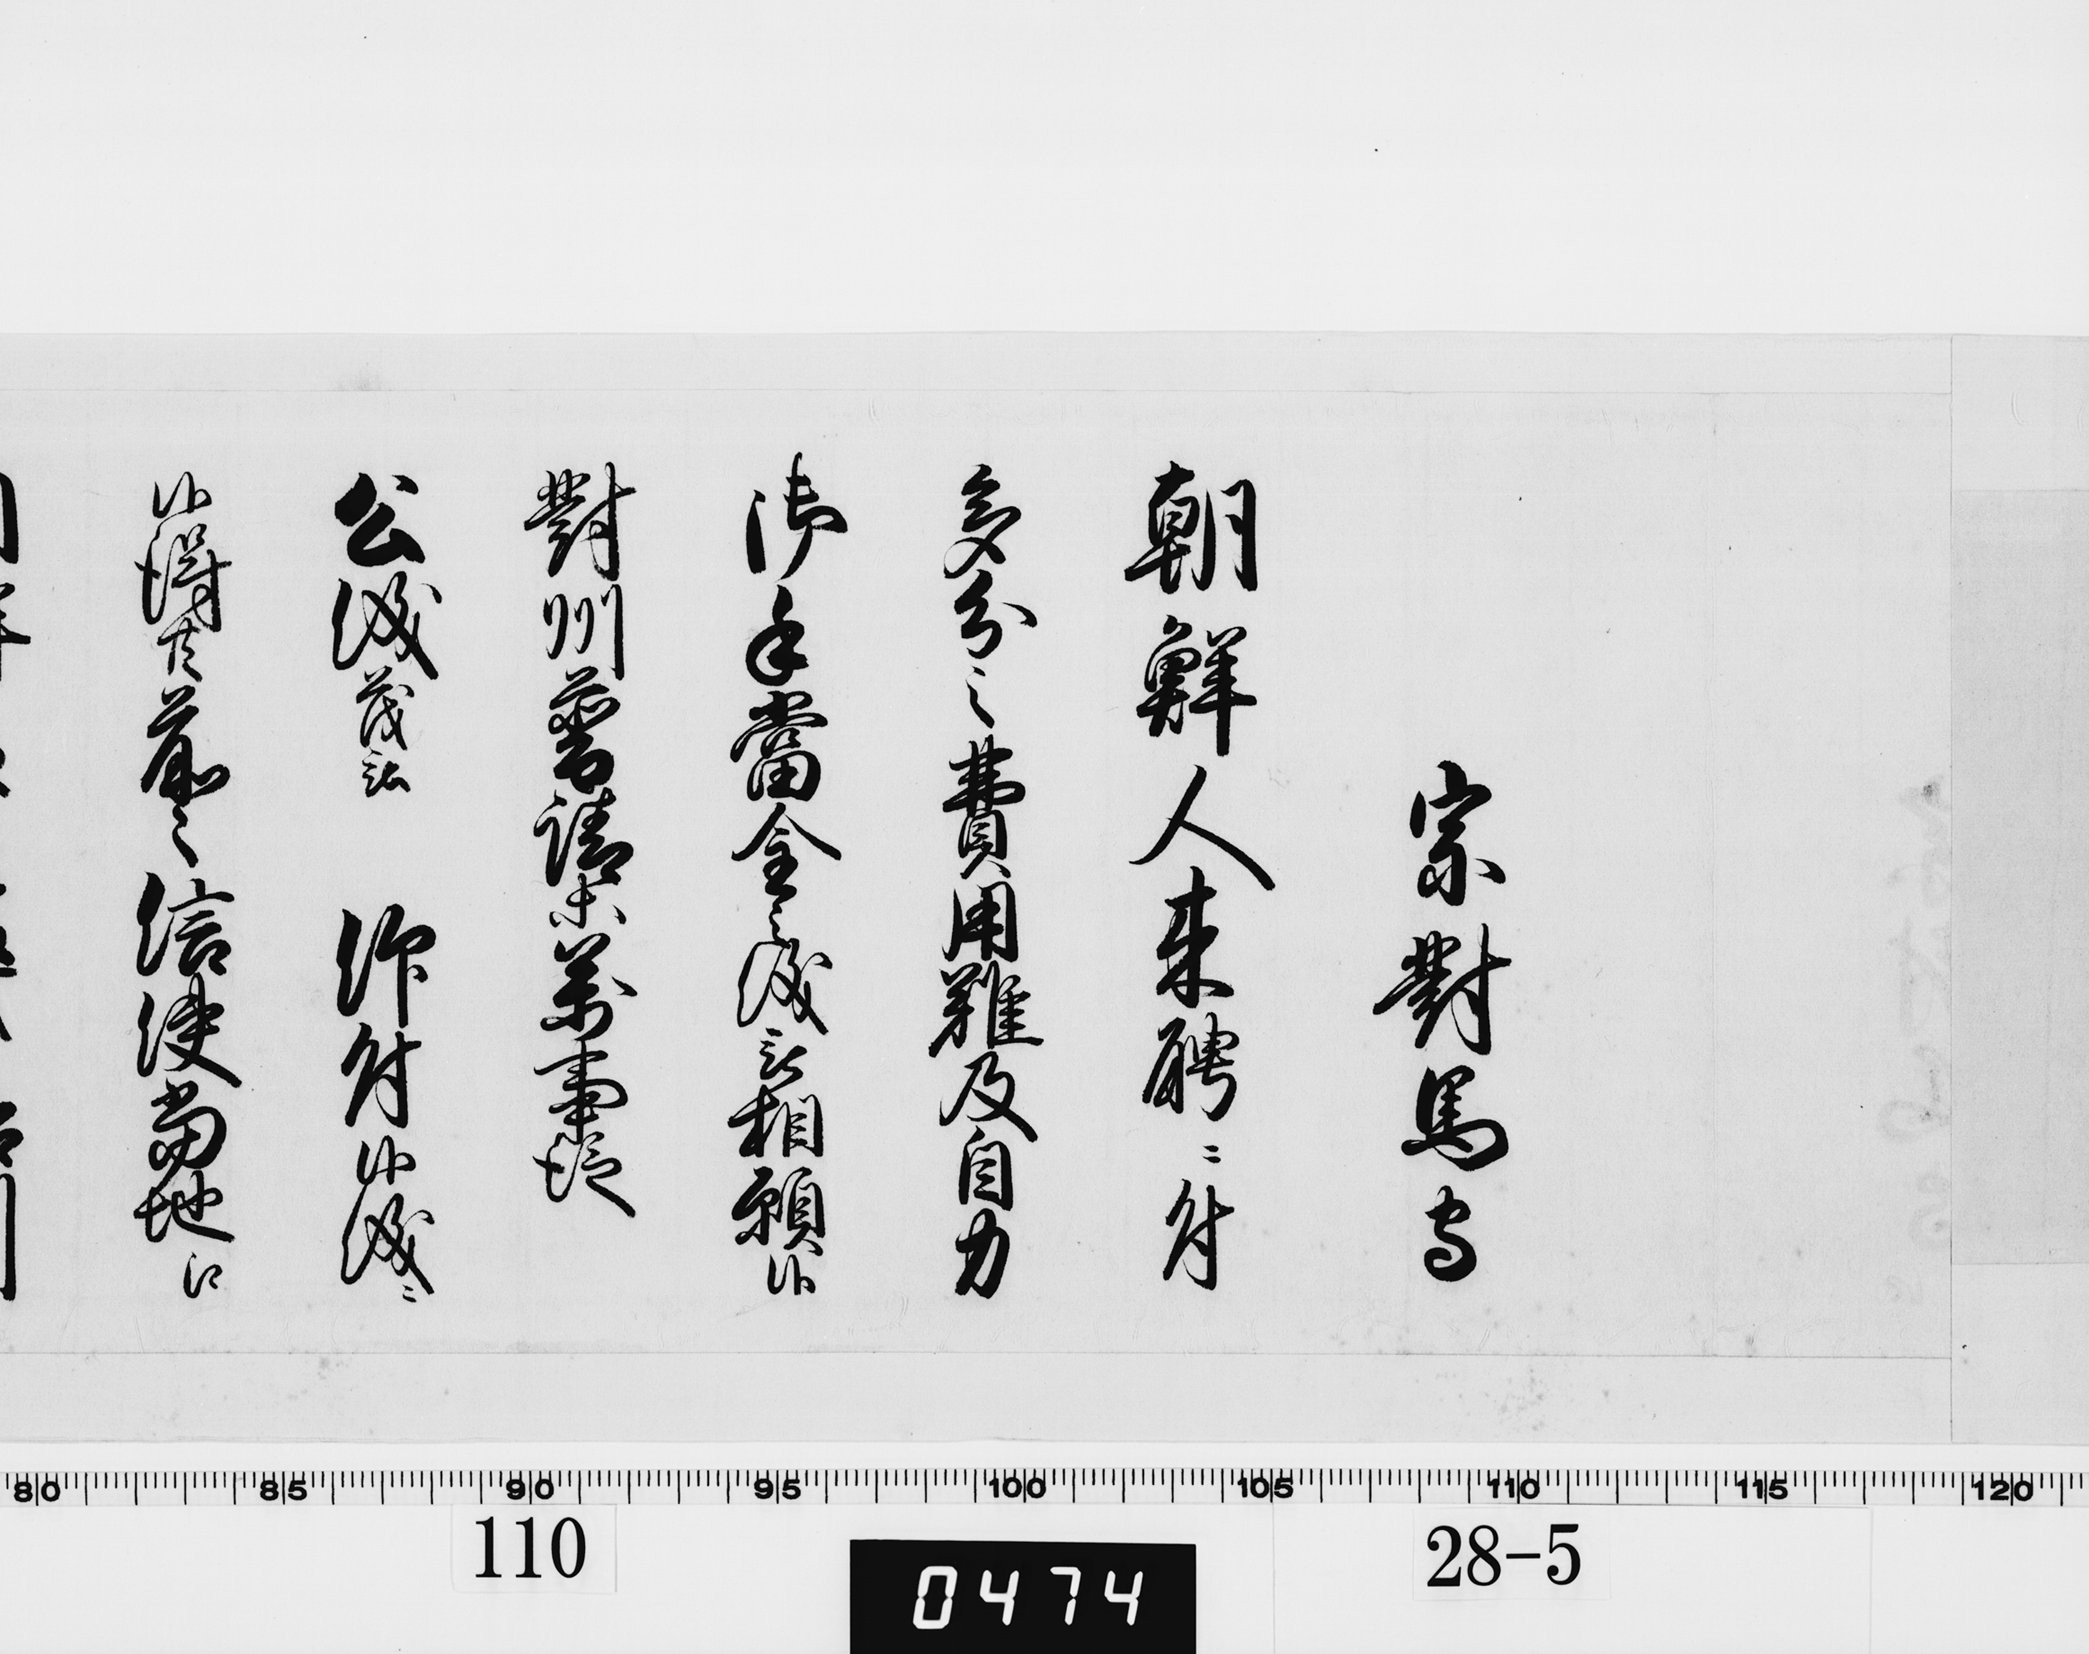 宗對馬守
朝鮮人来聘ニ付
多分之費用難及自力
御手當金之儀被相願候
對州普請等萬事従
公儀茂被 仰付候儀ニ
候得共前々信使當地江
80 85 90 95 100 105 110 115 120
110 28-5
0474